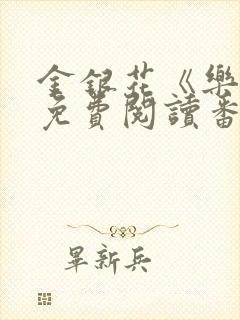 金銀花《樂
免費閱讀番
畢新兵